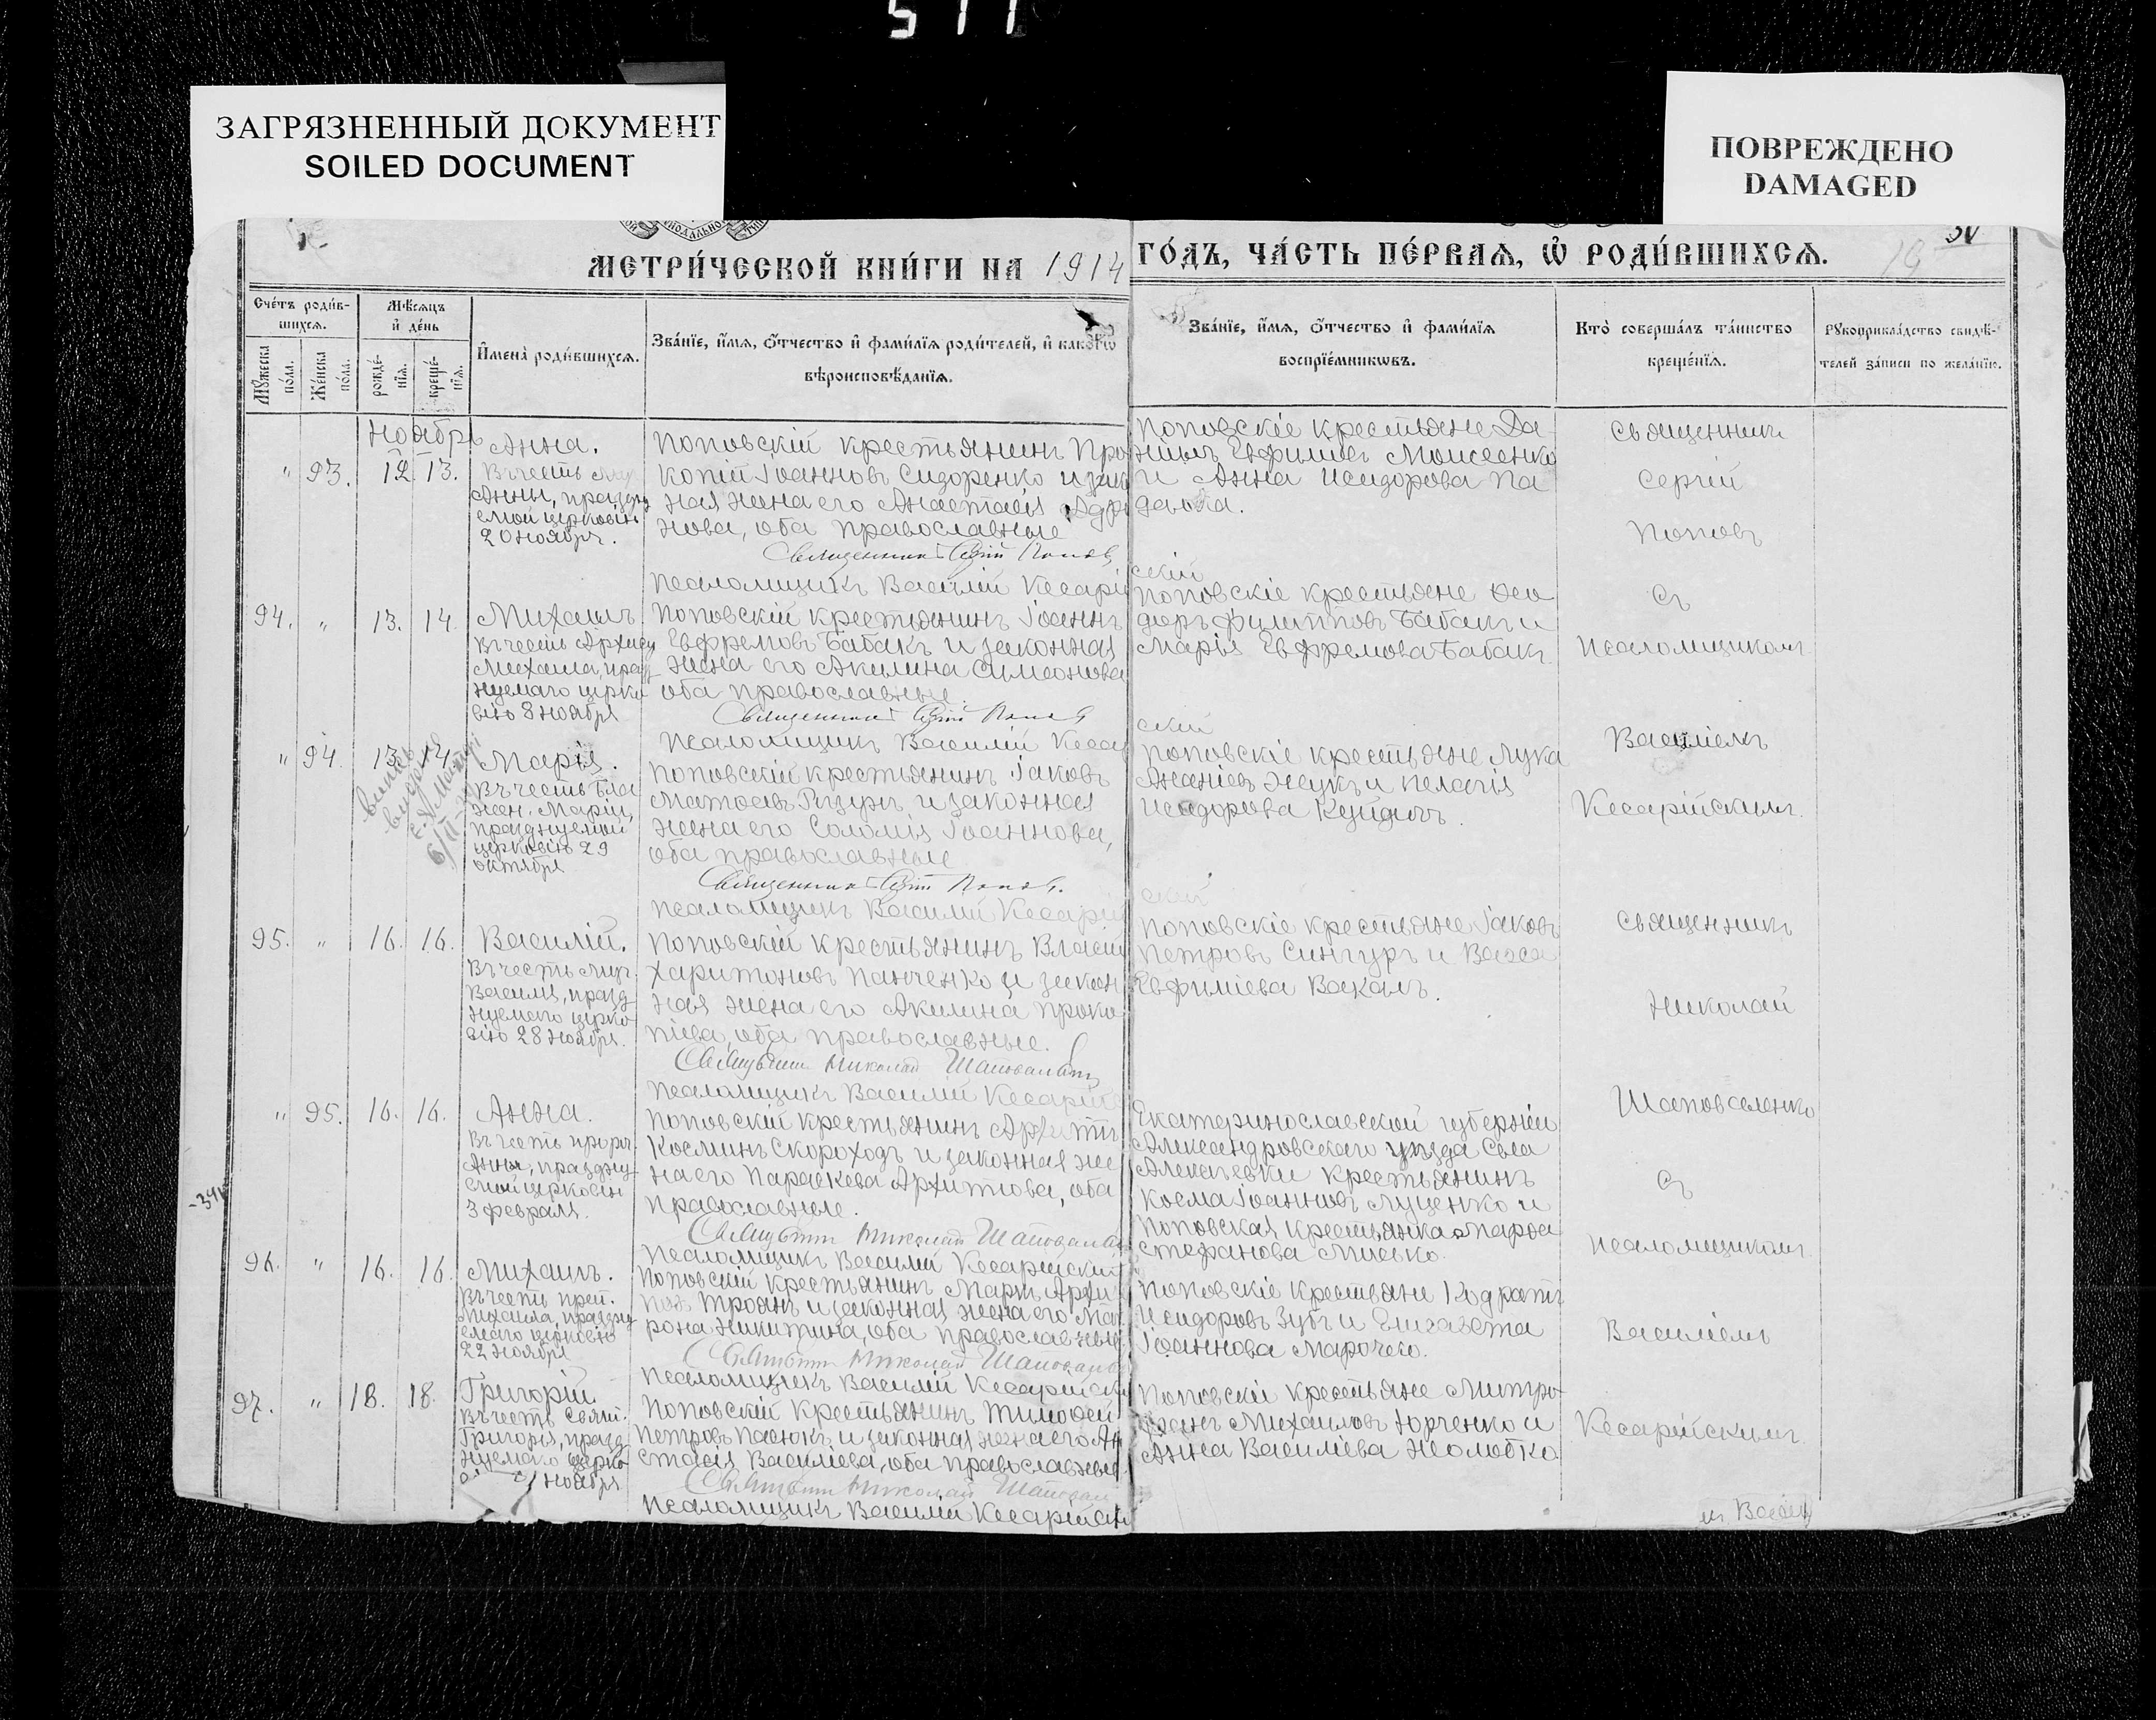 511
ЗАГРЯЗНЕННЫЙ ДОКУМЕНТ
SOILED DOCUMENT
ПОВРЕЖДЕНО
DAMAGED
МЕТРИ́ЧЕСКОЙ КНИ́ГИ НА 1914 ГО́ДЪ, ЧА́СТЬ ПЕ́РВАѦ, Ѡ҆ РОДИ́ВШИХСѦ.
Сче́тъ роди́в-
шихсѧ.
Мѣ́сѧцъ
и҆ де́нь
Мꙋ́жеска
по́ла.
Же́нска
по́ла.
рожде́-
нїѧ.
креще́-
нїѧ.
И҆мена̀ роди́вшихсѧ.
Зва́нїе, и҆́мѧ, ѻ҆́тчество и҆ фами́лїѧ роди́телей, и҆ како́гѡ
вѣроисповѣ́данїѧ.
Зва́нїе, и҆́мѧ, ѻ҆́тчество и҆ фами́лїѧ
воспрїе́мникѡвъ.
Кто̀ соверша́лъ та́инство
креще́нїѧ.
Рꙋкоприкла́дство свидѣ́-
телей за́писи по жела́нїю.
Ноябрь
" 93. 12. 13.
Анна.
Въ честь
Анны, праздну
емой церковію
20 ноября.
Поповскій крестьянинъ Про
копій Іоанновъ Сидоренко и закон
ная жена его Анастасія
нова, оба православные
Священникъ Сергій Поповъ
Псаломщикъ Василій Кесарій
скій
Поповскіе крестьяне Да
ніилъ Евфиміевъ Моисеенко
и Анна Исидорова Па
далка.
Священникъ
Сергій
Поповъ
94. " 13. 14.
Михаилъ
Въ честь Архист
Михаила, празд
нуемаго церко
вію 8 ноября
Поповскій крестьянинъ Іоаннъ
Евфремовъ Бабакъ и законная
жена его Акилина Симеонова
оба православные.
Священникъ Сергій Поповъ
Псаломщикъ Василій Кесарій
скій
Поповскіе крестьяне Ѳео
доръ Филипповъ Бабакъ и
Марія Евфремова Бабакъ.
съ
Псаломщикомъ
" 94. 13. 14.
Марія.
Въ честь Бла
жен. Маріи,
празднуемой
церковію 29
октября
Поповскій крестьянинъ Іаковъ
Матѳеевъ и законная
жена его Соломія Іоаннова,
оба православные
Священникъ Сергій Поповъ.
Псаломщикъ Василій Кесарій
скій
Поповскіе крестьяне Лука
Ананіевъ Жукъ и Пелагія
Исидорова
Василіемъ
Кесарійскимъ.
95. " 16. 16.
Василій.
Въ честь муч.
Василія, празд
нуемаго церко
вію 28 ноября.
Поповскій крестьянинъ Власій
Харитоновъ Панченко и закон
ная жена его Акилина Проко
піева, оба православные.
Священникъ Николай Шаповаленко
Псаломщикъ Василій Кесарійс
Поповскіе крестьяне Іаковъ
Петровъ Сингуръ и Васса
Евфиміева Вакалъ.
Священникъ
Николай
Шаповаленко
" 95. 16. 16.
Анна.
Въ честь прор.
Анны, праздну
емой церковію
3 февраля.
Поповскій крестьянинъ
Косминъ Скороходъ и законная же
на его Параскева Архипова, оба
православные.
Священникъ Николай Шаповаленко
Псаломщикъ Василій Кесарійскій
Екатеринославской губерніи
Александровскаго уѣзда села
Алексѣевки крестьянинъ
Косма Іоанновъ Луценко и
Поповская крестьянка Марѳа
Стефанова
съ
Псаломщикомъ
96. " 16. 16.
Михаилъ.
Въ честь преп.
Михаила, праздну
емаго церковію
22 ноября
Поповскій крестьянинъ Марк Архип
повъ Троянъ и законная жена его Мат
рона Никитина, оба православные
Священникъ Николай Шаповаленко
Псаломщикъ Василій Кесарійскій
Поповскіе крестьяне Кодратъ
Исидоровъ Зубъ и Елизавета
Іоаннова Марочко.
Василіемъ
97. " 18. 18.
Григорій
Въ честь Свят.
Григорія, празд
нуемаго церко
ноября
Поповскій крестьянинъ Тимоѳей
Петровъ Пасюкъ и законная жена его Ана
стасія Василіева, оба православные.
Священникъ Николай Шаповал
Псаломщикъ Василій Кесарійскій
Поповскіе крестьяне Митро
фанъ Михаиловъ Юрченко и
Анна Василіева Жолобко
Кесарійскимъ.